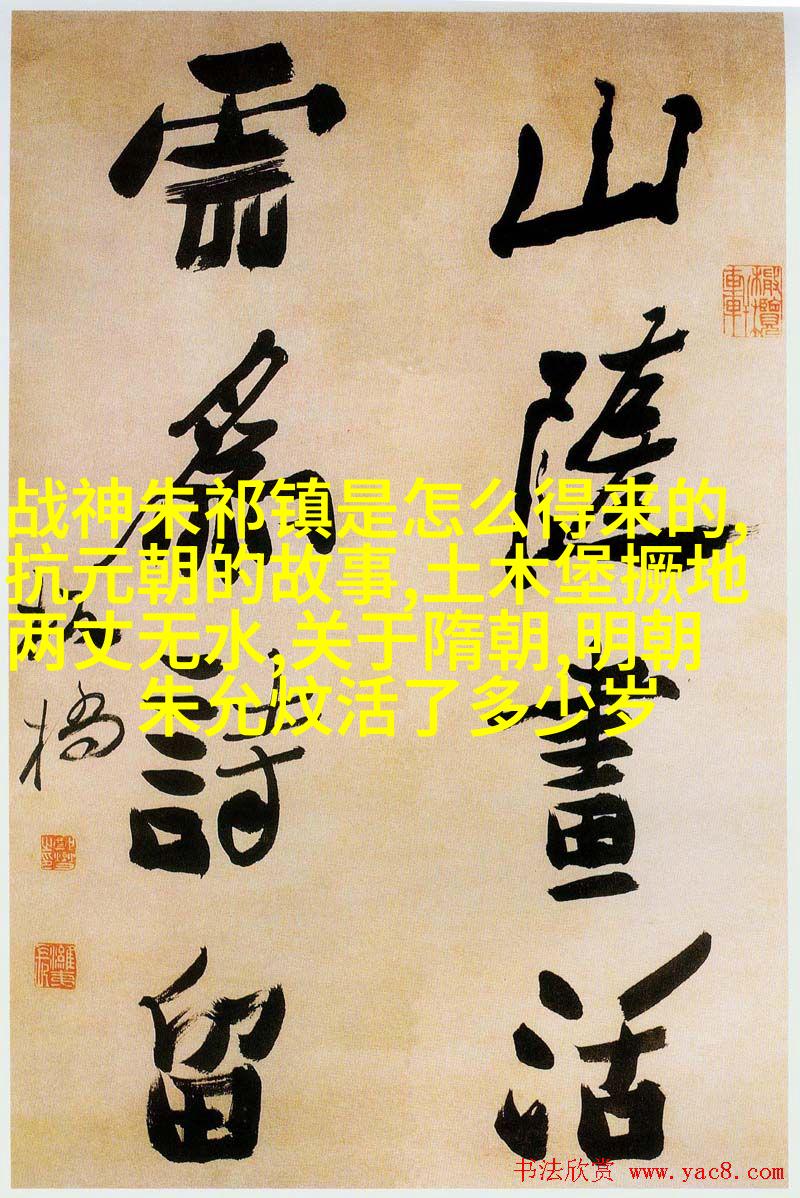 山隨畫活
雲爲詩留
板橋
战神朱祁镇是怎么得来的,
抗元朝的故事,土木堡撅地
两丈无水,关于隋朝,明朝
朱允炆活了多少岁
书法欣赏 www.yac8.com